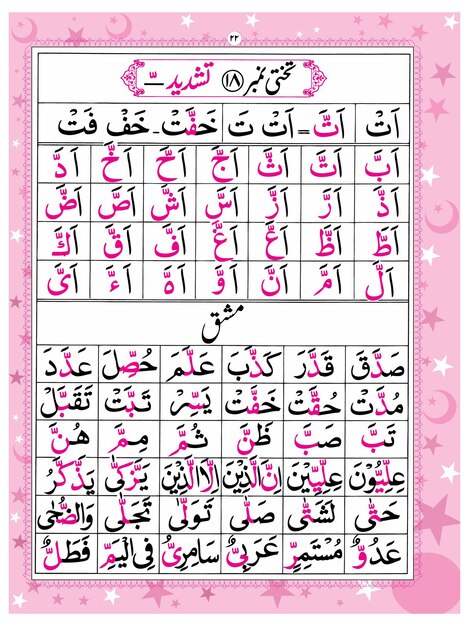 ۲۲
تختی نمبر ۱۸ تشدید ـّ
اَتْ اَتَّ = اَتْ تَ خَفَّتْ - خَفْ فَتْ
اَبَّ اَتَّ اَثَّ اَجَّ اَحَّ اَخَّ اَدَّ
اَذَّ اَرَّ اَزَّ اَسَّ اَشَّ اَصَّ اَضَّ
اَطَّ اَظَّ اَعَّ اَغَّ اَفَّ اَقَّ اَكَّ
اَلَّ اَمَّ اَنَّ اَوَّ اَهَّ اَءَّ اَیَّ
مشق
صَدَّقَ قَدَّرَ كَذَّبَ عَلَّمَ حُصِّلَ عَدَّدَ
مُدَّتْ حُقَّتْ خَفَّتْ يَسِّرْ تَبَّتْ تَقَبَّلْ
تَبَّ صَبَّ ظَنَّ ثُمَّ مِمَّ هُنَّ
عِلِّيُّوْنَ عِلِّيِّيْنَ اِنَّ الَّذِيْنَ اِلَّا الَّذِيْنَ يَزَّكّٰى يَذَّكَّرُ
حَتّٰى لَشَتّٰى صَلّٰى تَوَلّٰى تَجَلّٰى وَالضُّحٰى
عَدُوٌّ مُسْتَمِرٌّ عَرَبِیٌّ سَامِرِیُّ فِی الْيَمِّ فَطَلٌّ